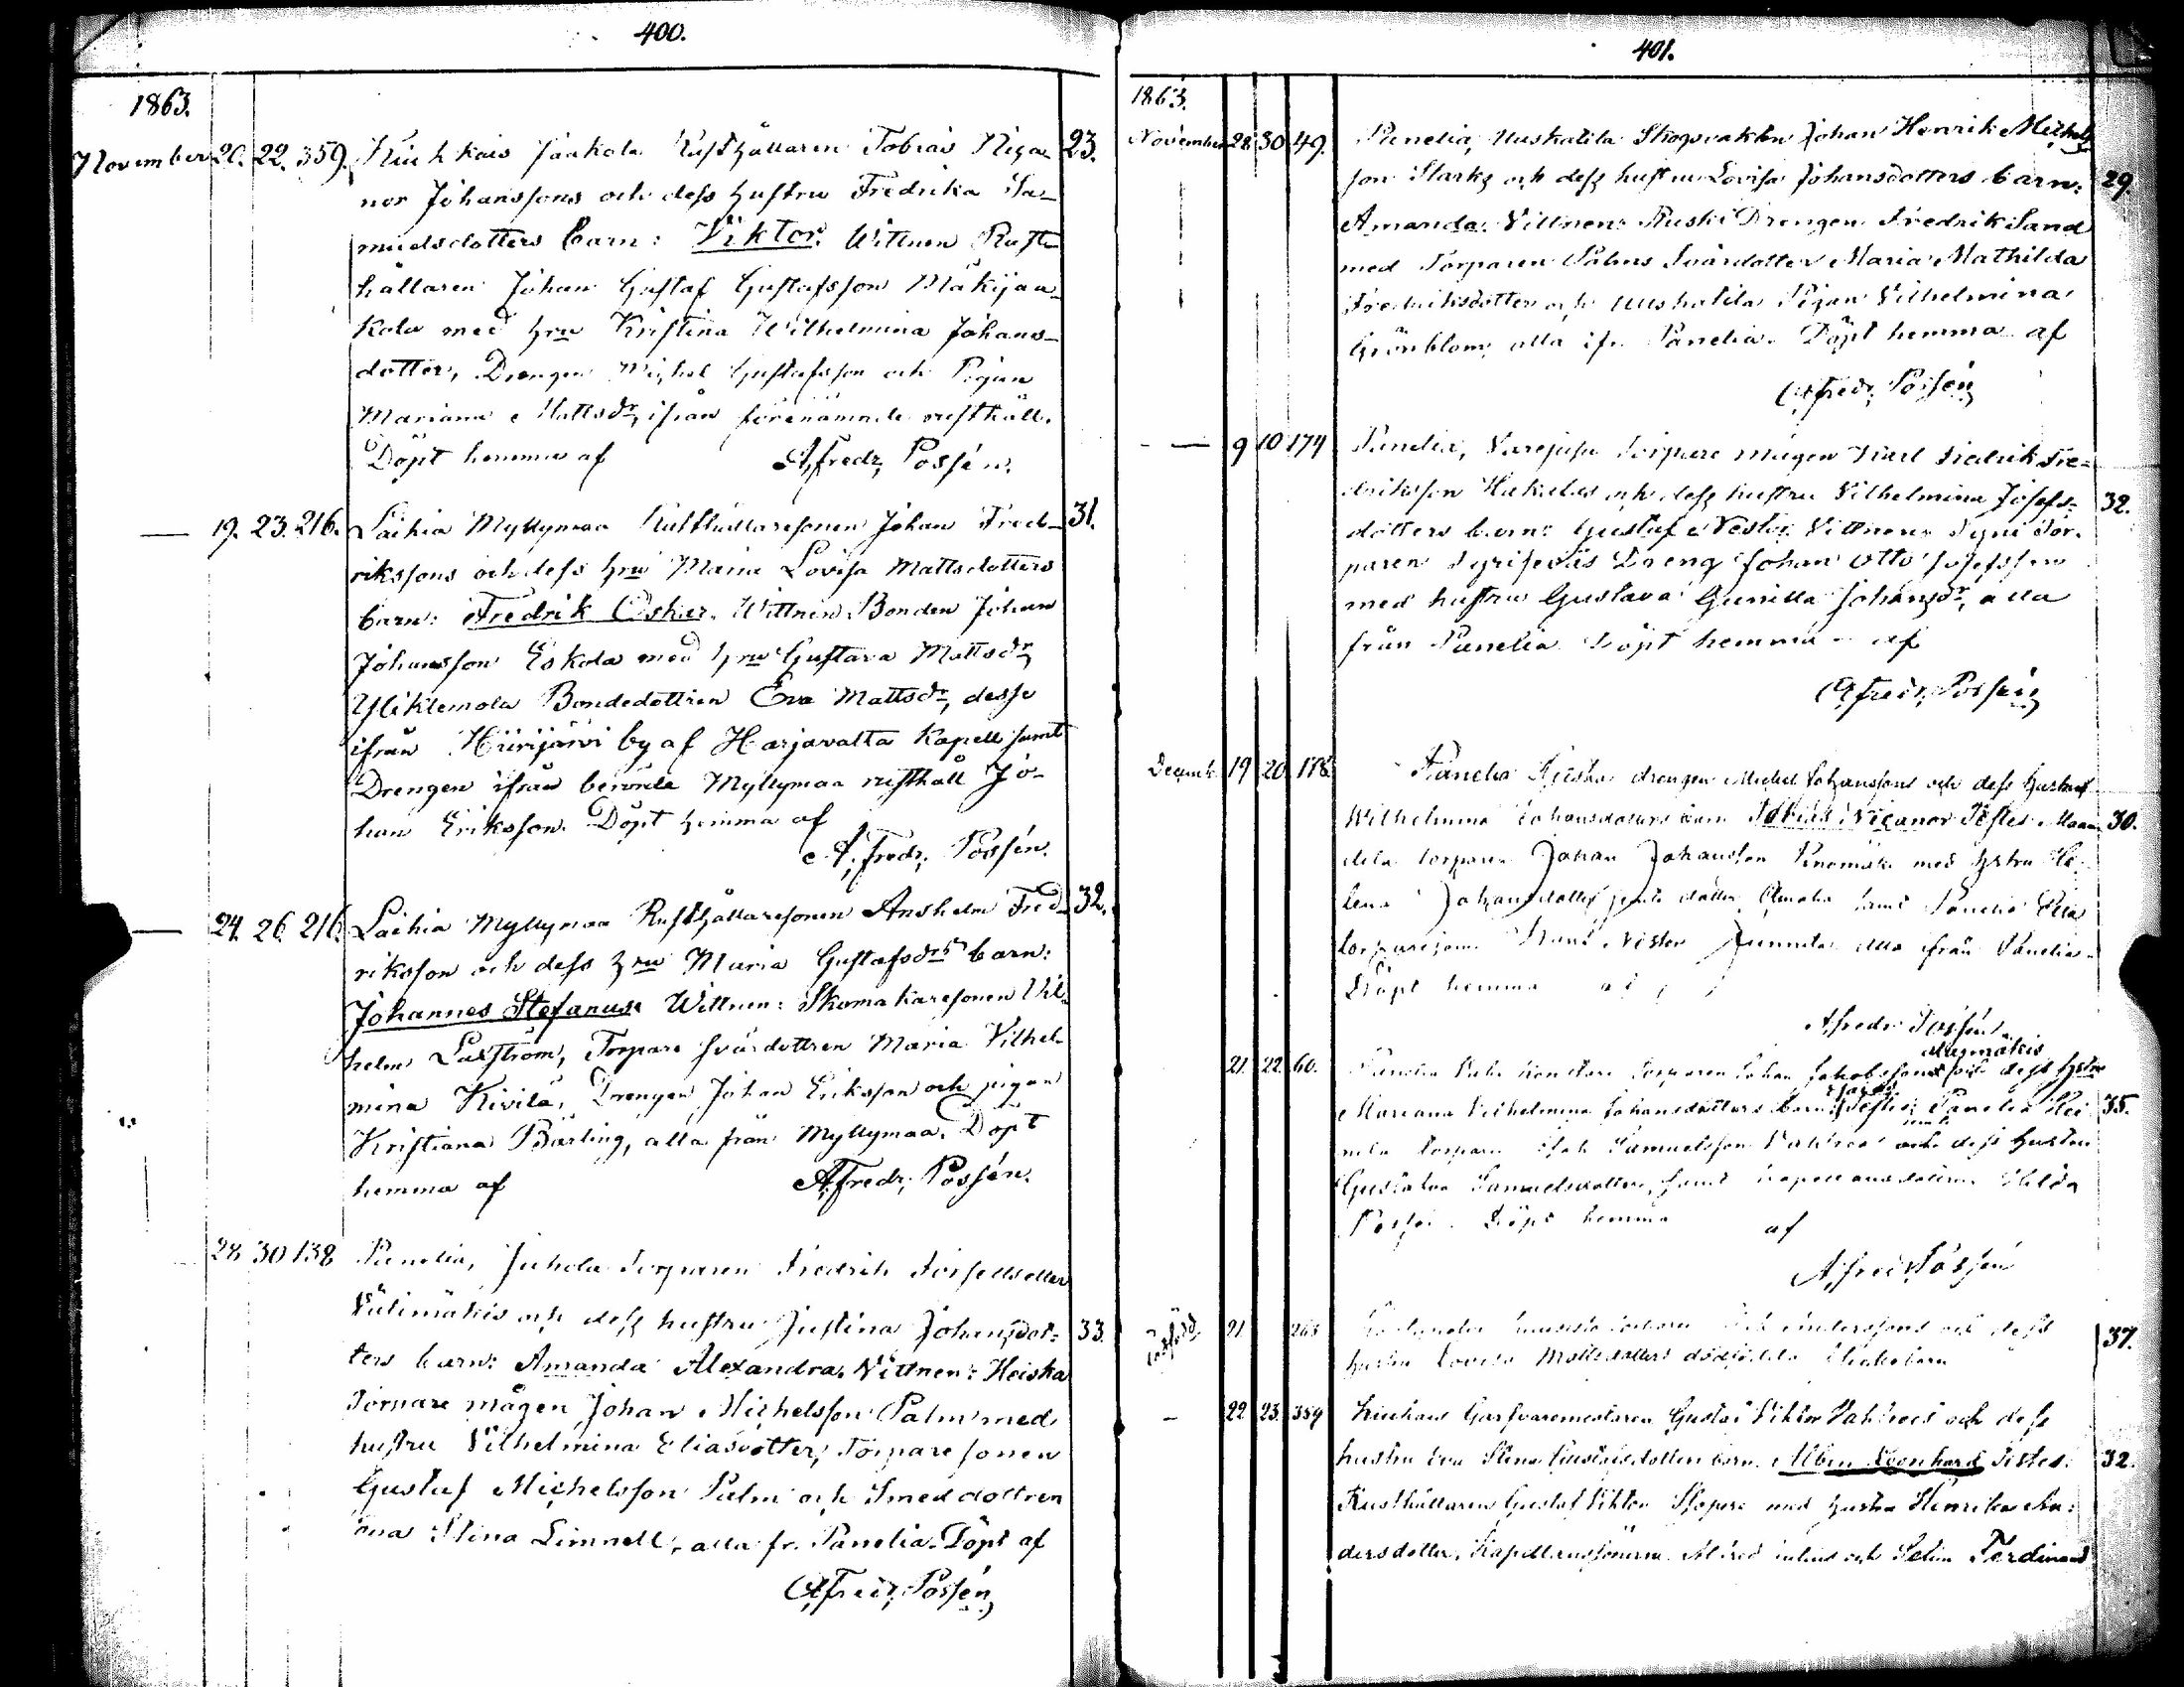 400.
1863.
November 20. 22. 359. Kiukais Jaakola Rusthållaren Tobias Nica- 23.
nor Johanssons och dess hustru Fredrika Sa-
muelsdotters barn: Viktor. Wittnen Rust-
hållaren Johan Gustaf Gustafsson Mäkijaa-
kola med hru Kristina Wilhelmina Johans-
dotter, Drengen Michel Gustafsson och Pigan
Mariana Mattsdr, ifrån förenämnde rusthåll.
Döpt hemma af Alfredr Possén.
— 19. 23. 216. Laihia Myllymaa Rusthållaresonen Johan Fred- 31.
rikssons och dess hru Maria Lovisa Mattsdotters
barn: Fredrik Oskar. Wittnen: Bonden Johan
Johansson Eskola med hru Gustava Mattsdr,
Yliklemola Bondedottren Eva Mattsdr, desse
ifrån Hiirijärvi by af Harjavalta Kapell samt
Drengen ifrån berörde Myllymaa rusthåll Jo-
han Eriksson. Döpt hemma af
A. Fredr. Possén.
— 24. 26. 216. Laihia Myllymaa Rusthållaresonen Anshelm Fred- 32.
riksson och dess hru Maria Gustafsdrs barn:
Johannes Stefanus. Wittnen: Skomakaresonen Vil-
helm Laxström, Torpare svärdottren Maria Vilhel-
mina Kivilä, Drengen Johan Eriksson och pigan
Kristiana Bärling, alla från Myllymaa. Döpt
hemma af A. Fredr. Possén.
28 30 138 Panelia, Juhola Torparen Fredrik Forsells eller
Välimäkis och dess hustru Justina Johansdot- 33.
ters barn: Amanda Alexandra. Vittnen: Heiska
Torpare mågen Johan Michelsson Palm med
hustru Vilhelmina Eliasdotter, Torpare sonen
Gustaf Michelsson Palm och Smed dottren
Stina Limnell, alla fr. Panelia. Döpt af
A. Fredr. Possén
401.
1863.
November 28 30 49. Panelia, Uuskatila Skogsvakten Johan Henrik Michels-
son Starks och dess hustru Lovisa Johansdotters barn: 29.
Amanda. Vittnen: Ruski Drengen Fredrik Sand
med Torparen Palms Svärdotter Maria Mathilda
Fredriksdotter och Uuskatila Pigan Vilhelmina
Grönblom, alla ifr. Panelia. Döpt hemma af
A. Fredr. Possén
— 9 10 174 Panelia, Torpare mågen Karl Fredrik Fre-
driksson och dess hustru Vilhelmina Josefs- 32.
dotters barn: Gustaf Nestor. Vittnen: Tor-
paren Dreng Johan Otto Josefsson
med hustru Gustava Gunilla Johansdr, alla
från Panelia. Döpt hemma af
A. Fredr. Possén
Decemb. 19 20 178 Panelia drengen Michel Johanssons och dess hustrus
Wilhelmina Johansdotters barn Tobias Nicanor Testes: 30.
torparen Johan Johansson med hstru He-
lena Johansdotter dotter Amalia samt Panelia
Nestor alla från Panelia.
Döpt hemma af
A. Fredr. Possén
21. 22. 60. Panelia torparen Johan Jakobssons Mezmäkis och dess hstru
Mariana Vilhelmina Johansdotters barn: Testes: Panelia 35.
torparen Samuelsson och dess hustru
Gustava Samuelsdotter, samt Kapellansdottern Hilda
Possén. Döpt hemma af
A. Fredr. Possén
Dödfödd. 21 265 Anderssons och dess
hustru Lovisa Mattsdotters dödfödda flickebarn 37.
— 22 23. 359 Kiukais Garfvaremästaren Gustaf Viktor och dess
hustru Eva Stina Gustafsdotters barn Albin Leonhard Testes: 32.
Rusthållaren Gustaf Viktor med hustru Henrika An-
dersdotter, Kapellanssönerne Alfred Julius och Selim Ferdinand